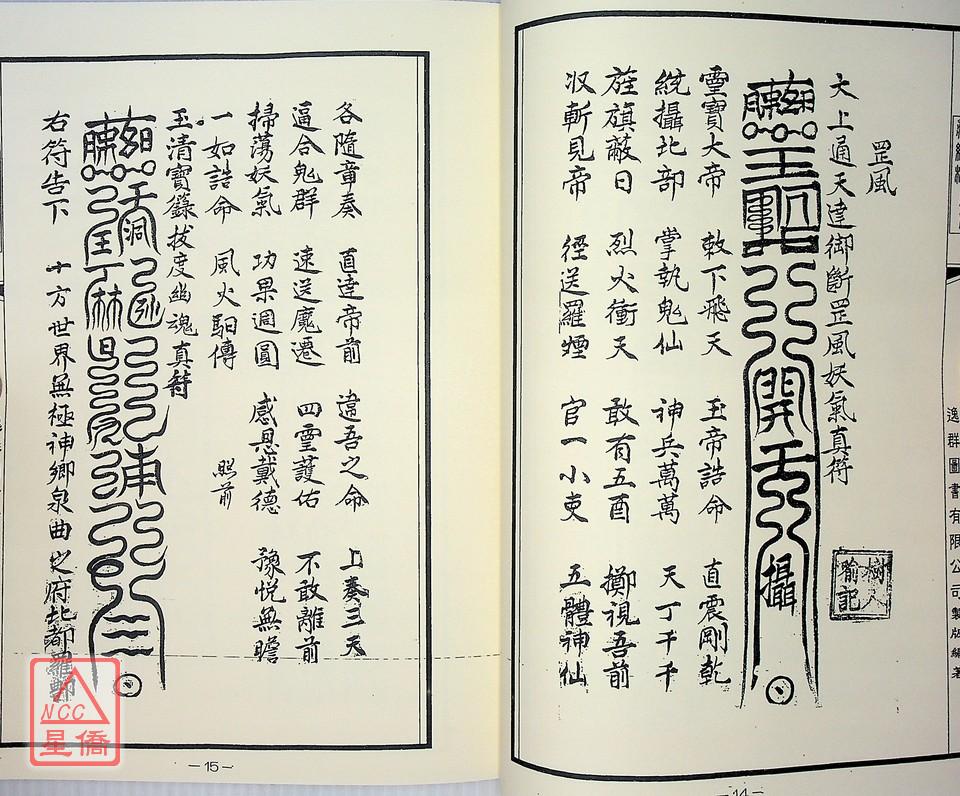 罡風
太上通天達御斷罡風妖氣真符
靈寶大帝 敕下飛天 玉帝誥命 直震剛乾
統攝北部 掌執鬼仙 神兵萬萬 天丁千千
旌旗蔽日 烈火衝天 敢有五酉 擲視吾前
収斬見帝 徑送羅煙 官一小吏 五體神仙
樹人
記
逸群圖書有限公司製版編著
—14—
各隨章奏 直達帝前 違吾之命 上奏三天
逼合鬼群 速送魔遷 四靈護佑 不敢離前
掃蕩妖氣 功果週圓 感恩戴德 豫悅無瞻
一如誥命 風火馹傳 照前
玉清寶籙拔度幽魂真符
右符告下 十方世界無極神鄉泉曲之府北都羅酆
—15—
NCC
星僑